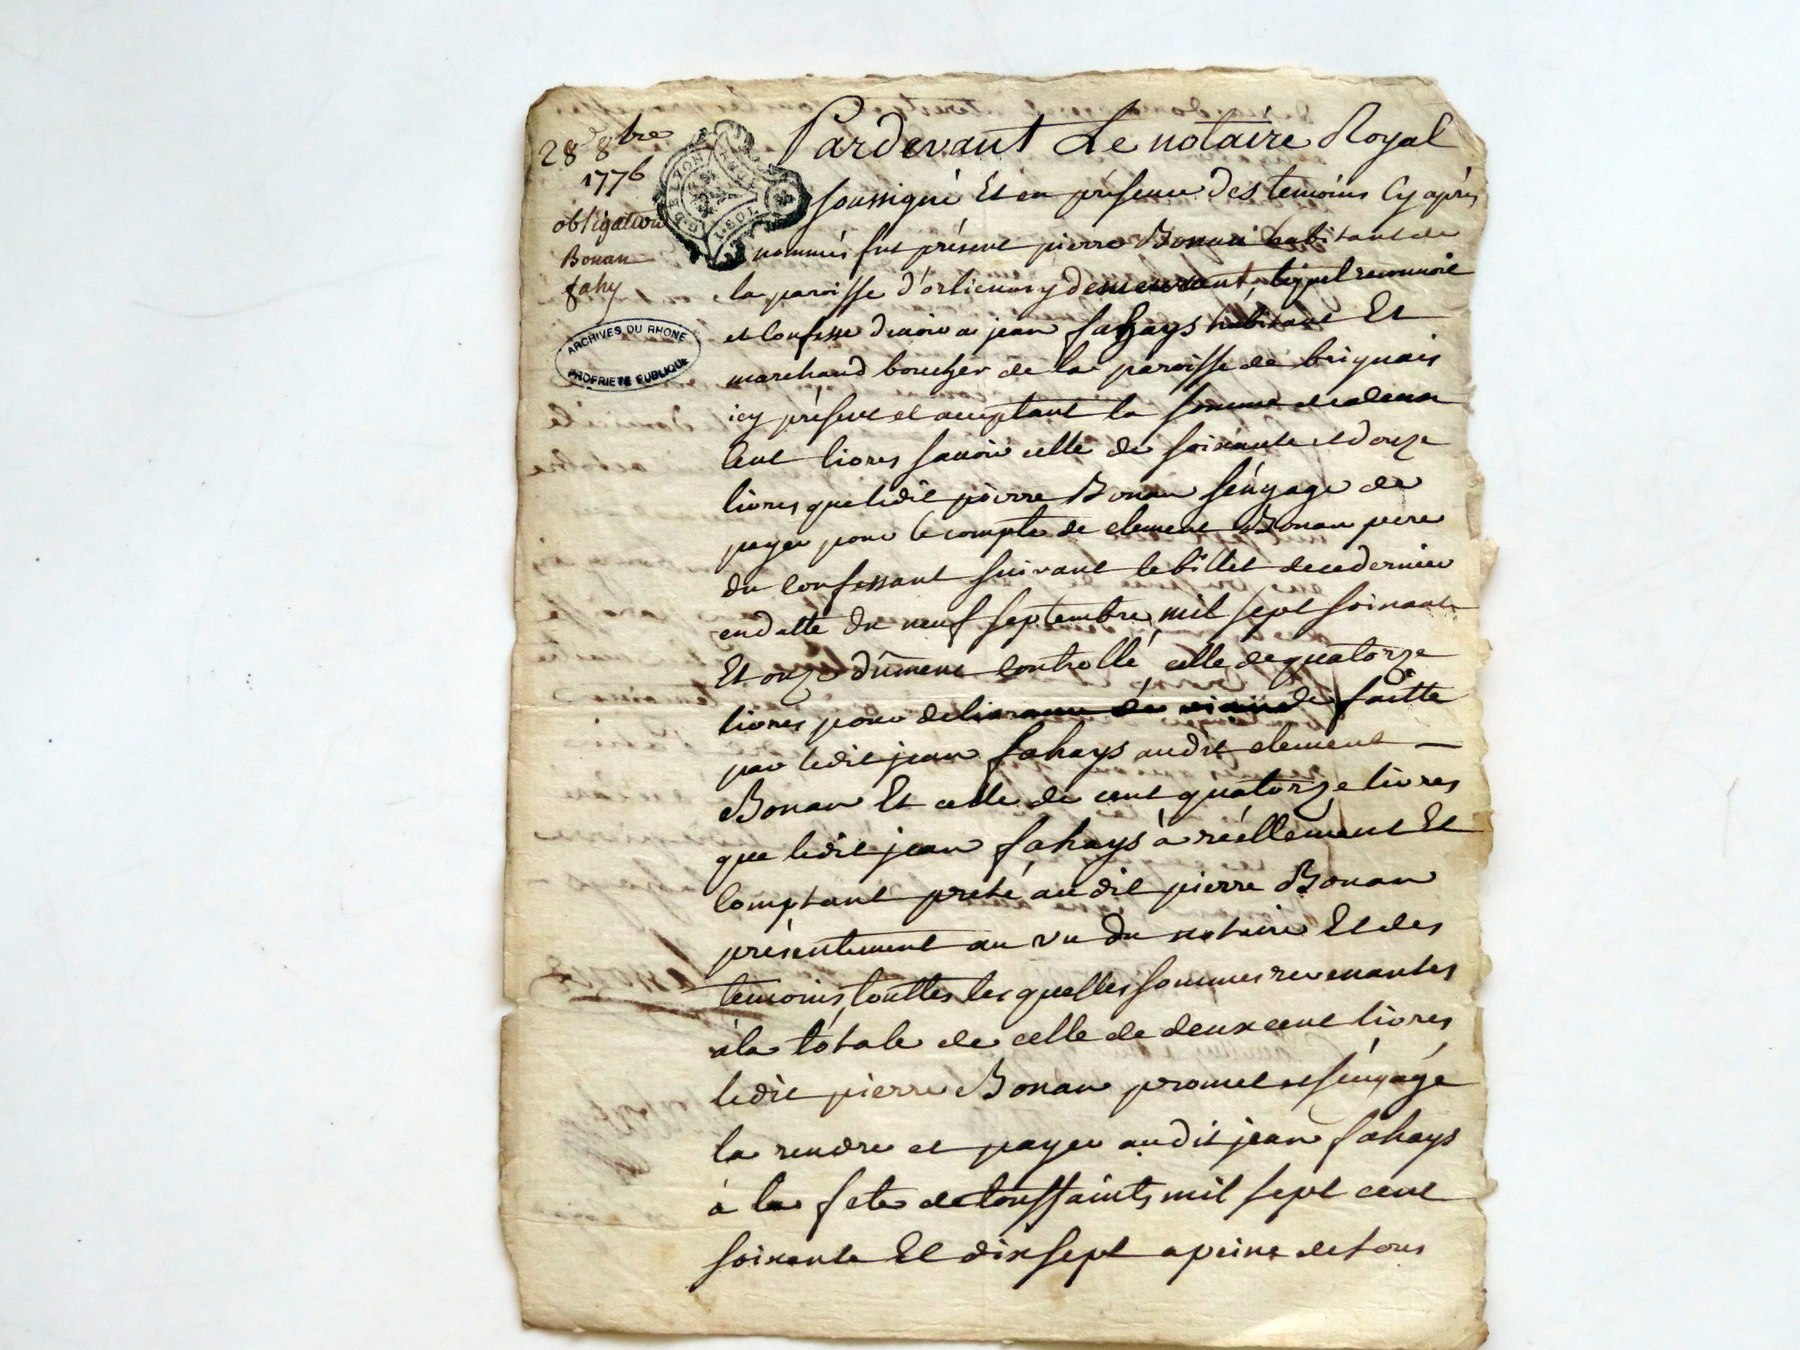 28 8bre
1776
obligation
Bonan
fahy
G. DE LYON
ARCHIVES DU RHONE
PROPRIETE PUBLIQUE
Pardevant Le notaire Royal
soussigné Et en présence des temoins Cy après
nommés fut présent pierre Bonan habitant de
la paroisse d'orlienas y demeurant, lequel reconnoit
et Confesse devoir a jean fahays habitant Et
marchand boucher de la paroisse de brignais
icy présent et acceptant la somme de deux
Cent livres savoir celle de soixante et douze
livres que ledit pierre Bonan s'engage de
payer pour le compte de clement Bonan pere
du Confessant suivant le billet de ce dernier
en datte du neuf septembre mil sept soixante
Et onze dûment Controllé, celle de quatorze
livres pour delivrance de viande faitte
par ledit jean fahays audit clement
Bonan Et celle de cent quatorze livres
que ledit jean fahays à réellement Et
Comptant preté audit pierre Bonan
présentement au vu du notaire Et des
temoins, touttes lesquelles sommes revenantes
à la totale de celle de deux cent livres
ledit pierre Bonan promet et s'engage
la rendre et payer audit jean fahays
à la fete de toussaints mil sept cent
soixante Et dix sept a peine de tous